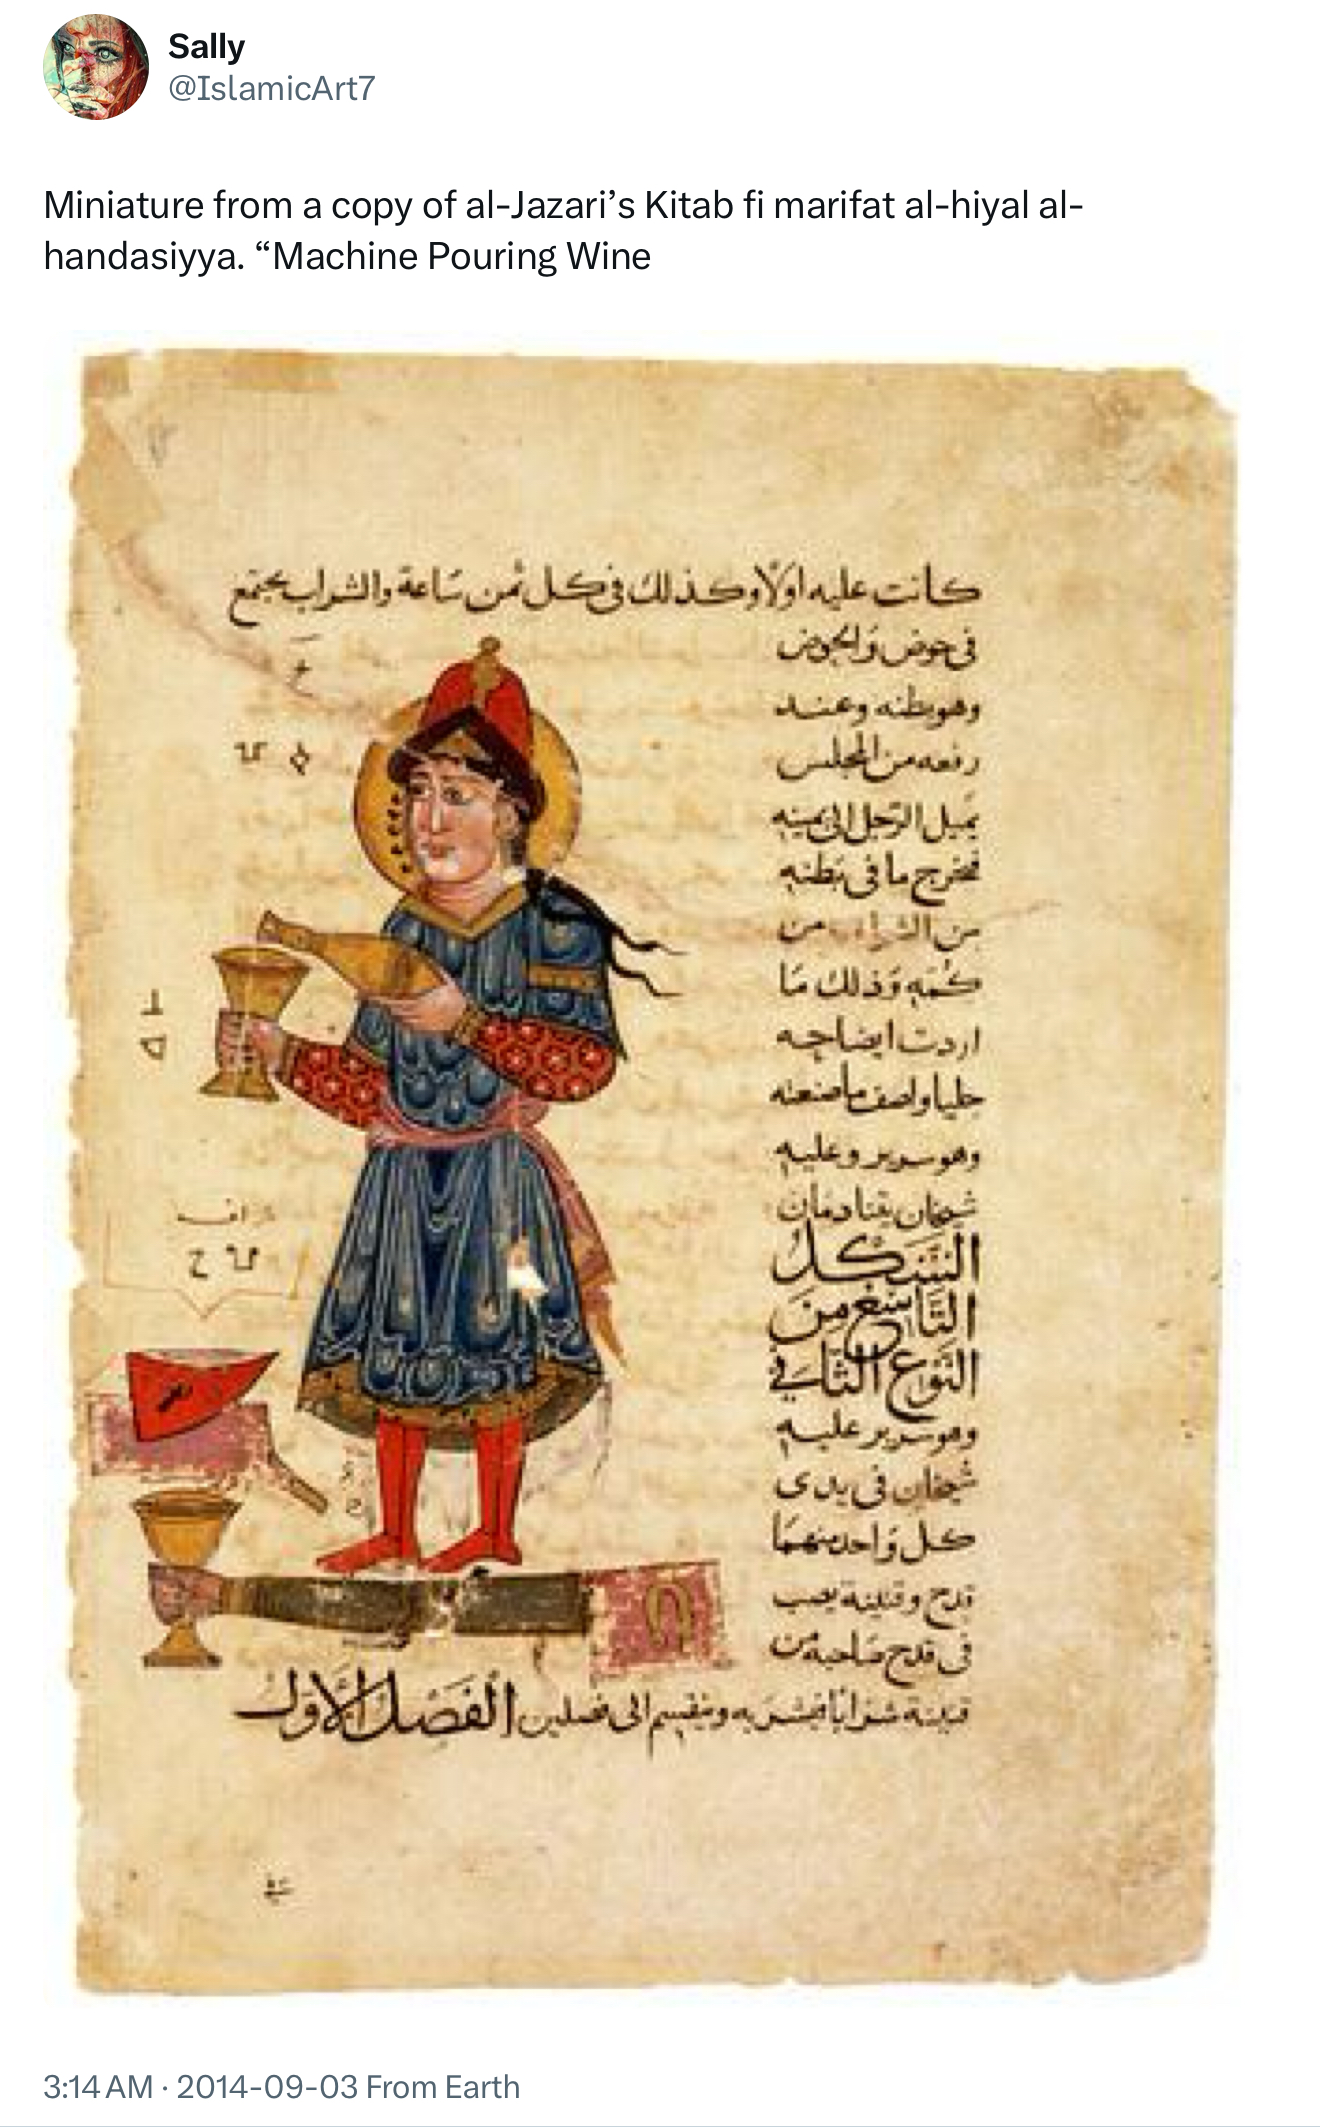 Sally
@IslamicArt7
Miniature from a copy of al-Jazari’s Kitab fi marifat al-hiyal al-
handasiyya. “Machine Pouring Wine
كانت عليه اولا وكذلك في كل ثمن ساعة والشراب يجتمع
في حوض والحوض
وهو بطنه وعند
رفعه من المجلس
يميل الرجل الى يمينه
فيخرج ما في بطنه
من الشراب من
كمه وذلك ما
اردت ايضاحه
جليا واصف ما صنعته
وهو سرير وعليه
شيخان يتنادمان
الشكل
التاسع من
النوع الثاني
وهو سرير عليه
شيخان في يدي
كل واحد منهما
قدح وقنينة يصب
في قدح صاحبه من
قنينة شرابا فيشربه وينقسم الى فصلين الفصل الاول
3:14 AM · 2014-09-03 From Earth